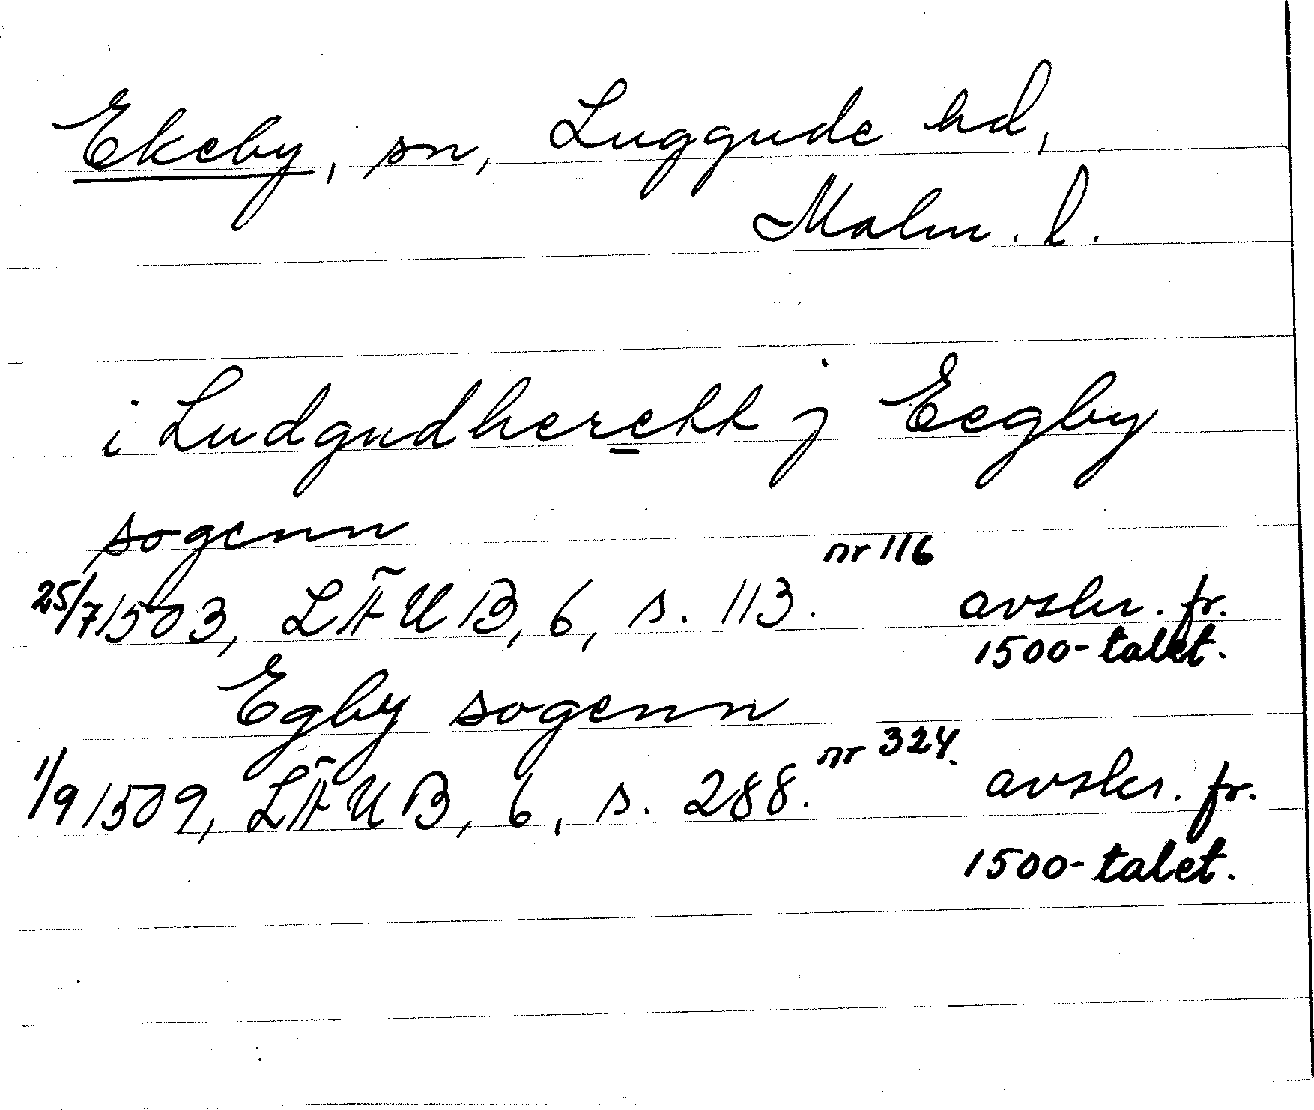 Ekeby, sn, Luggude hd,
Malm. l.
i Ludgudherett j Eegby
sogenn
25/7 1503, LÄUB, 6, s. 113. nr 116 avskr. fr.
1500-talet.
Egby sogenn
1/9 1509, LÄUB, 6, s. 288. nr 324. avskr. fr.
1500-talet.